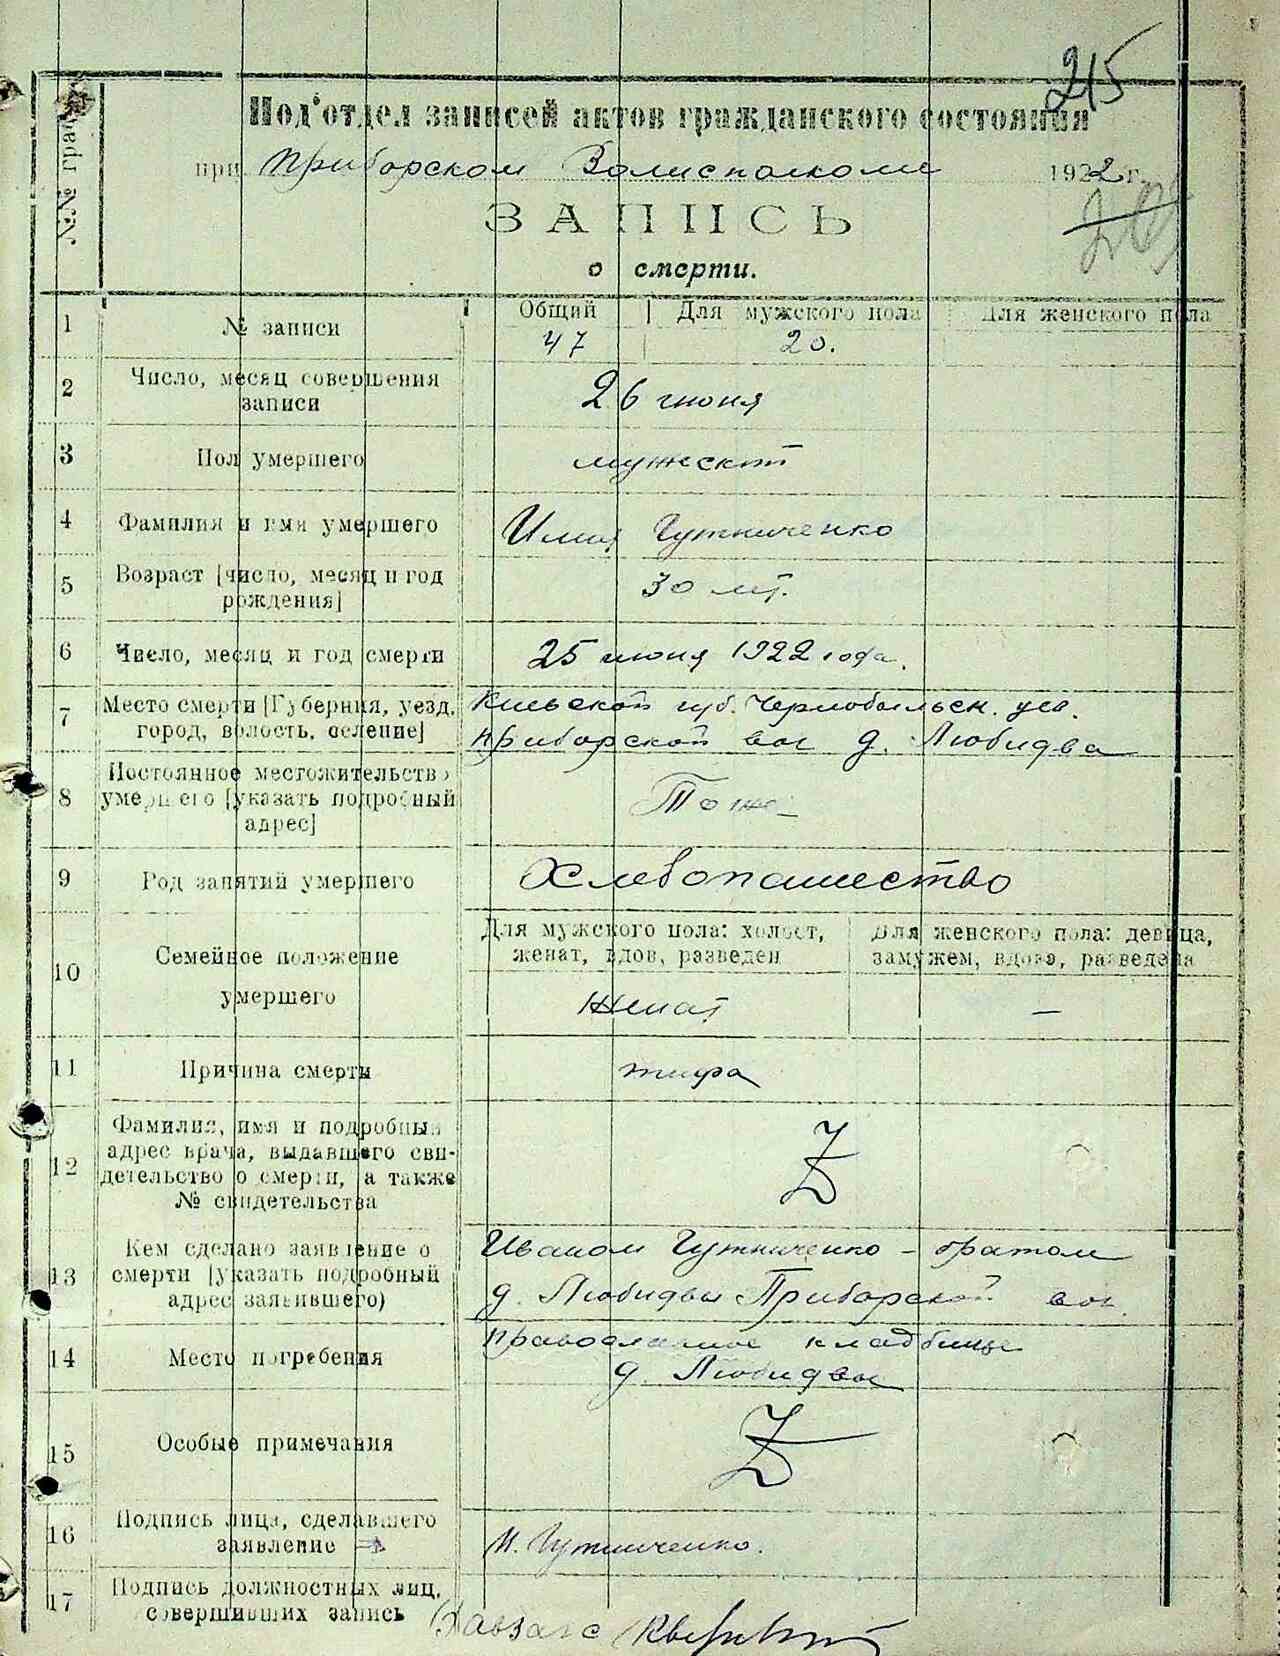 215
№№ граф
Под'отдел записей актов гражданского состояния
при Приборском Волисполкоме 1922 г.
ЗАПИСЬ
о смерти.
1 № записи Общий Для мужского пола Для женского пола
47 20.
2 Число, месяц совершения записи 26 июня
3 Пол умершего мужской
4 Фамилия и имя умершего Илия Гутниченко
5 Возраст [число, месяц и год рождения] 30 лет.
6 Число, месяц и год смерти 25 июня 1922 года.
7 Место смерти [Губерния, уезд, город, волость, селение] Киевской губ. Чернобыльск. уез.
Приборской вол д. Любидва
8 Постоянное местожительство умершего [указать подробный адрес] Тоже
9 Род занятий умершего Хлебопашество
10 Семейное положение умершего
Для мужского пола: холост, женат, вдов, разведен
Для женского пола: девица, замужем, вдова, разведена
Женат —
11 Причина смерти тифа
12 Фамилия, имя и подробный адрес врача, выдавшего свидетельство о смерти, а также № свидетельства
13 Кем сделано заявление о смерти [указать подробный адрес заявившего) Иваном Гутниченко – братом
д. Любидвы Приборской вол.
14 Место погребения православное кладбище
д. Любидвы
15 Особые примечания
16 Подпись лица, сделавшего заявление И. Гутниченко.
17 Подпись должностных лиц, совершивших запись